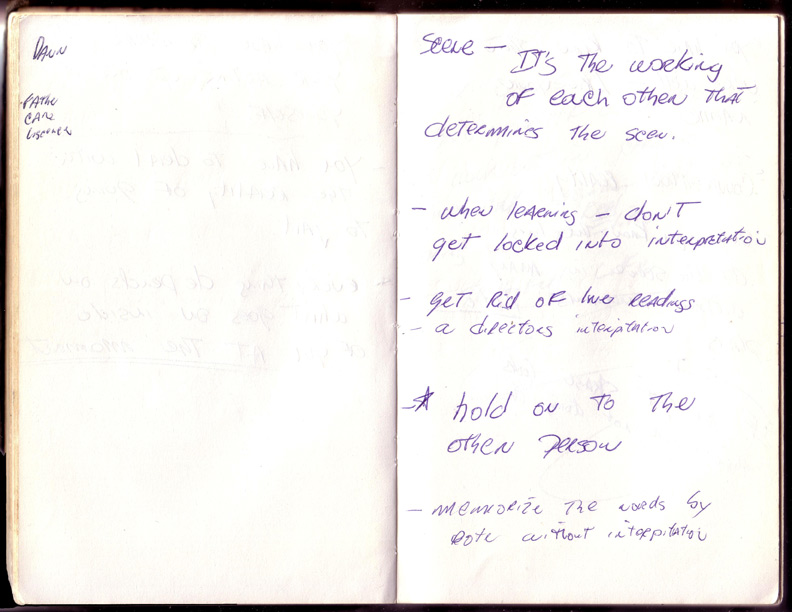 Dawn
Scene — It's the working
of each other that
determines the scen.
- when learning - don't
get locked into interpretation
- get Rid of line readings
- a directors interpitation
- * hold on to the
other person
- memorize the words by
Rote without interpitation